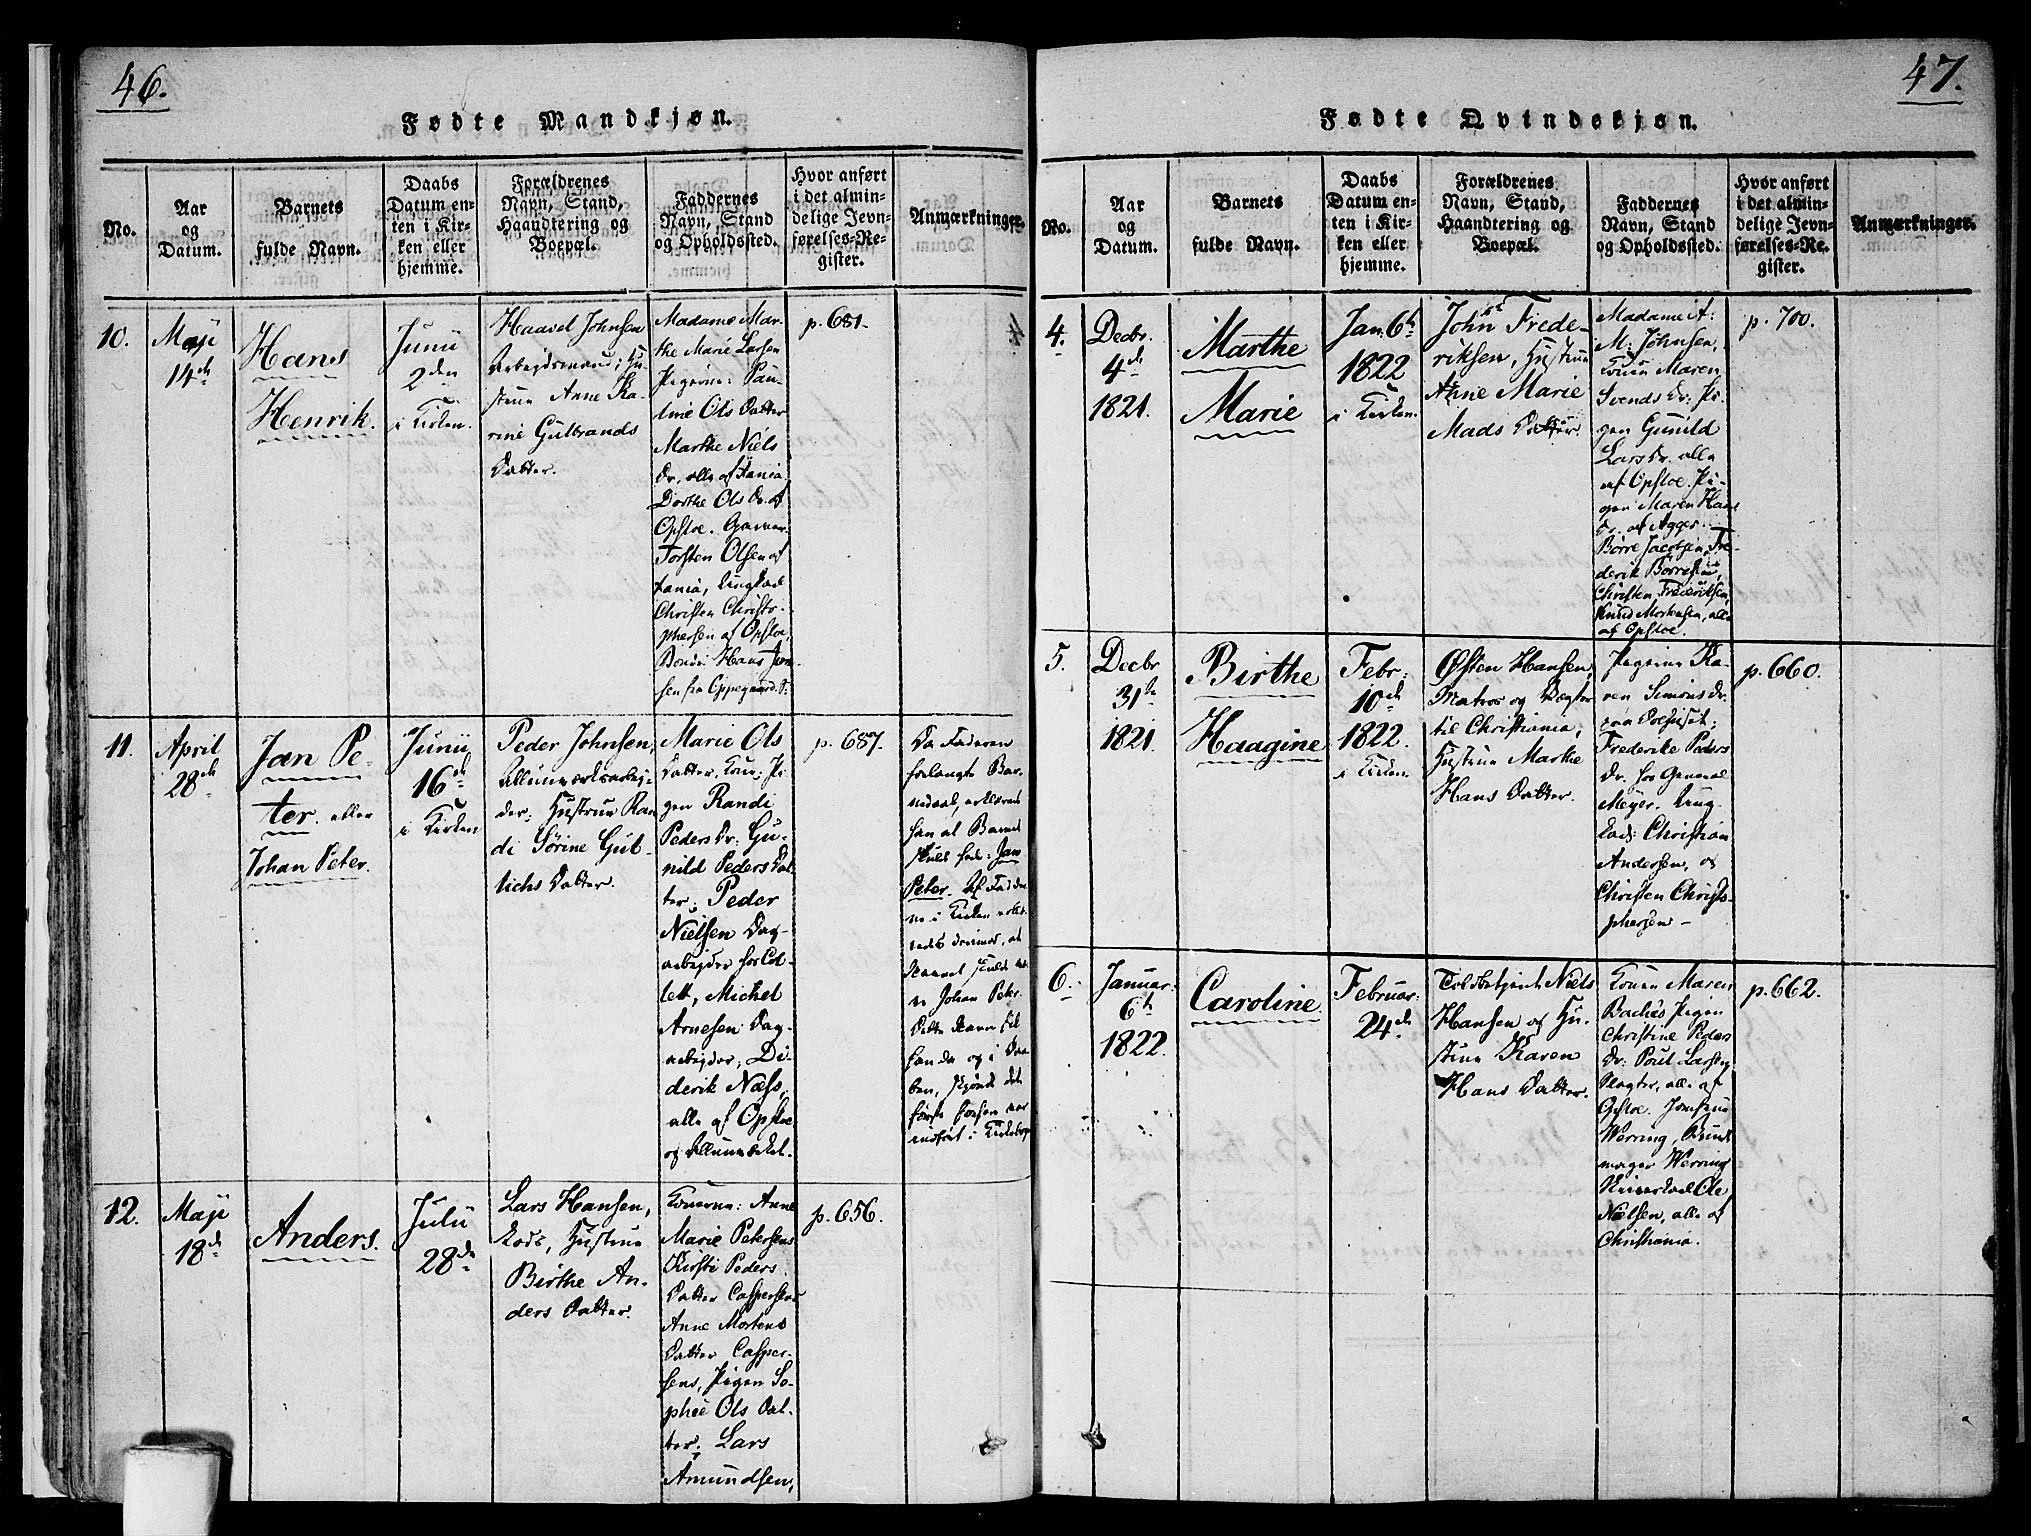 46.
Fødte Mandkjøn.
No.
Aar
og
Datum.
Barnets
fulde Navn.
Daabs
Datum en-
ten i Kir-
ken eller
hjemme.
Forældrenes
Navn, Stand,
Haandtering og
Boepæl.
Faddernes
Navn, Stand
og Opholdssted.
Hvor anført
i det almin-
delige Jevn-
førelses-Re-
gister.
Anmærkninger.
10.
Maji
14de
Hans
Henrik.
Junii
2den
i Kirken.
Haavel Johnsen
Arbejdsmand; Hu-
strue Anne Ka-
rine Gulbrands
Datter.
Madame Mar-
the Marie Larsen
Pigerne: Pau-
line Ols Datter
Marthe Niels
Dr. alle af
Dorthe Ols Dr. af
Opsloe. Garver
Torsten Olsen af
Ungkarl
Christen Christo-
phersen af Opsloe,
Bonde: Hans Jen-
sen fra Oppegaard.
p. 681.
11.
April
28de
Jan Pe-
ter. eller
Johan Peter.
Junii
16de
i Kirken
Peder Johnsen,
Allunværksarbej-
der; Hustrue Ran-
di Sørine Gut-
lichs Datter.
Marie Ols
Datter, Kone; Pi-
gen Randi
Peders Dr: Gu-
nild Peders Dat-
ter; Peder
Nielsen Dag-
arbejder hos Col-
lett, Michel
Arnesen Dag-
arbejder; Di-
derik Næss,
alle af Opsloe
og Allunværket.
p. 687.
Da Faderen
forlangte Bar-
nedaab, erklærede
han at Barnet
skulde hede: Jan
Peter. Af Fadder-
ne i Kirken erklæ-
redes derimod, at
Navnet skulde væ-
re Johan Peter.
Dette Navn fik
han da og i Daa-
ben, skjøndt det
første forhen var
indført i Kirkebogen
12.
Maji
18de
Anders.
Julii
28de
Lars Hansen,
Lods, Hustrue
Birthe An-
ders Datter.
Konerne: Anne
Marie Petersens
Kirsti Peders
Datter Caspersens
Anne Mortens
Datter Casper-
sens, Pigen So-
phie Ols Dat-
ter. Lars
Amundsen,
p. 656.
47.
Fødte Qvindekjøn.
No.
Aar
og
Datum.
Barnets
fulde Navn.
Daabs
Datum en-
ten i Kir-
ken eller
hjemme.
Forældrenes
Navn, Stand,
Haandtering og
Boepæl.
Faddernes
Navn, Stand
og Opholdssted.
Hvor anført
i det almin-
delige Jevn-
førelses-Re-
gister.
Anmærkninger.
4.
Decbr.
4de
1821.
Marthe
Marie
Jan. 6te
1822
i Kirken.
John Frede-
riksen, Hustrue
Anne Marie
Mads Datter.
Madame A:
M: Johnsen,
Konen Maren
Svends Dr: Pi-
gen Gunild
Lars Dr. alle
af Opsloe. Pi-
gen Maren Hans
Dr. af Agger.
Børre Jacobsen, Fre-
derik Børresen,
Christen Frederiksen,
Knud Mortensen, alle
af Opsloe.
p. 700.
5.
Decbr
31te
1821.
Birthe
Haagine
Febr:
10de
1822.
i Kirken.
Østen Hansen,
Matros og Vægter
til Christiania,
Hustrue Marthe
Hans Datter.
Pigerne Ka-
ren Simons Dr.
paa
Frederike Peders
Dr. hos General
Meyer. Ung-
karl: Christian
Andersen, og
Christen Christo-
phersen –
p. 660.
6.
Januar:
6te
1822.
Caroline.
Februar:
24de
Toldbetjent Niels
Hansen og Hu-
strue Karen
Hans Datter.
Konen Maren
Bache Pigen
Christine Peders
Dr: Poul Larsen,
Slagter, alle af
Opsloe. Jomfrue
Werring, Bund-
mager Werring
Ole
Nielsen, alle af
Christiania.
p. 662.